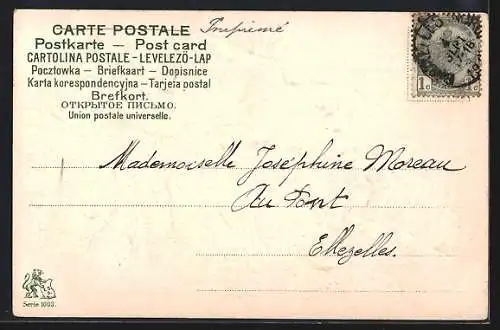 CARTE POSTALE
Imprimé
Postkarte — Post card
CARTOLINA POSTALE - LEVELEZŐ-LAP
Pocztowka — Briefkaart — Dopisnice
Karta korespondencyjna — Tarjeta postal
Brefkort.
ОТКРЫТОЕ ПИСЬМО.
Union postale universelle.
1c 1c
Mademoiselle Joséphine Moreau
Au Pont
Ellezelles.
Serie 1003.